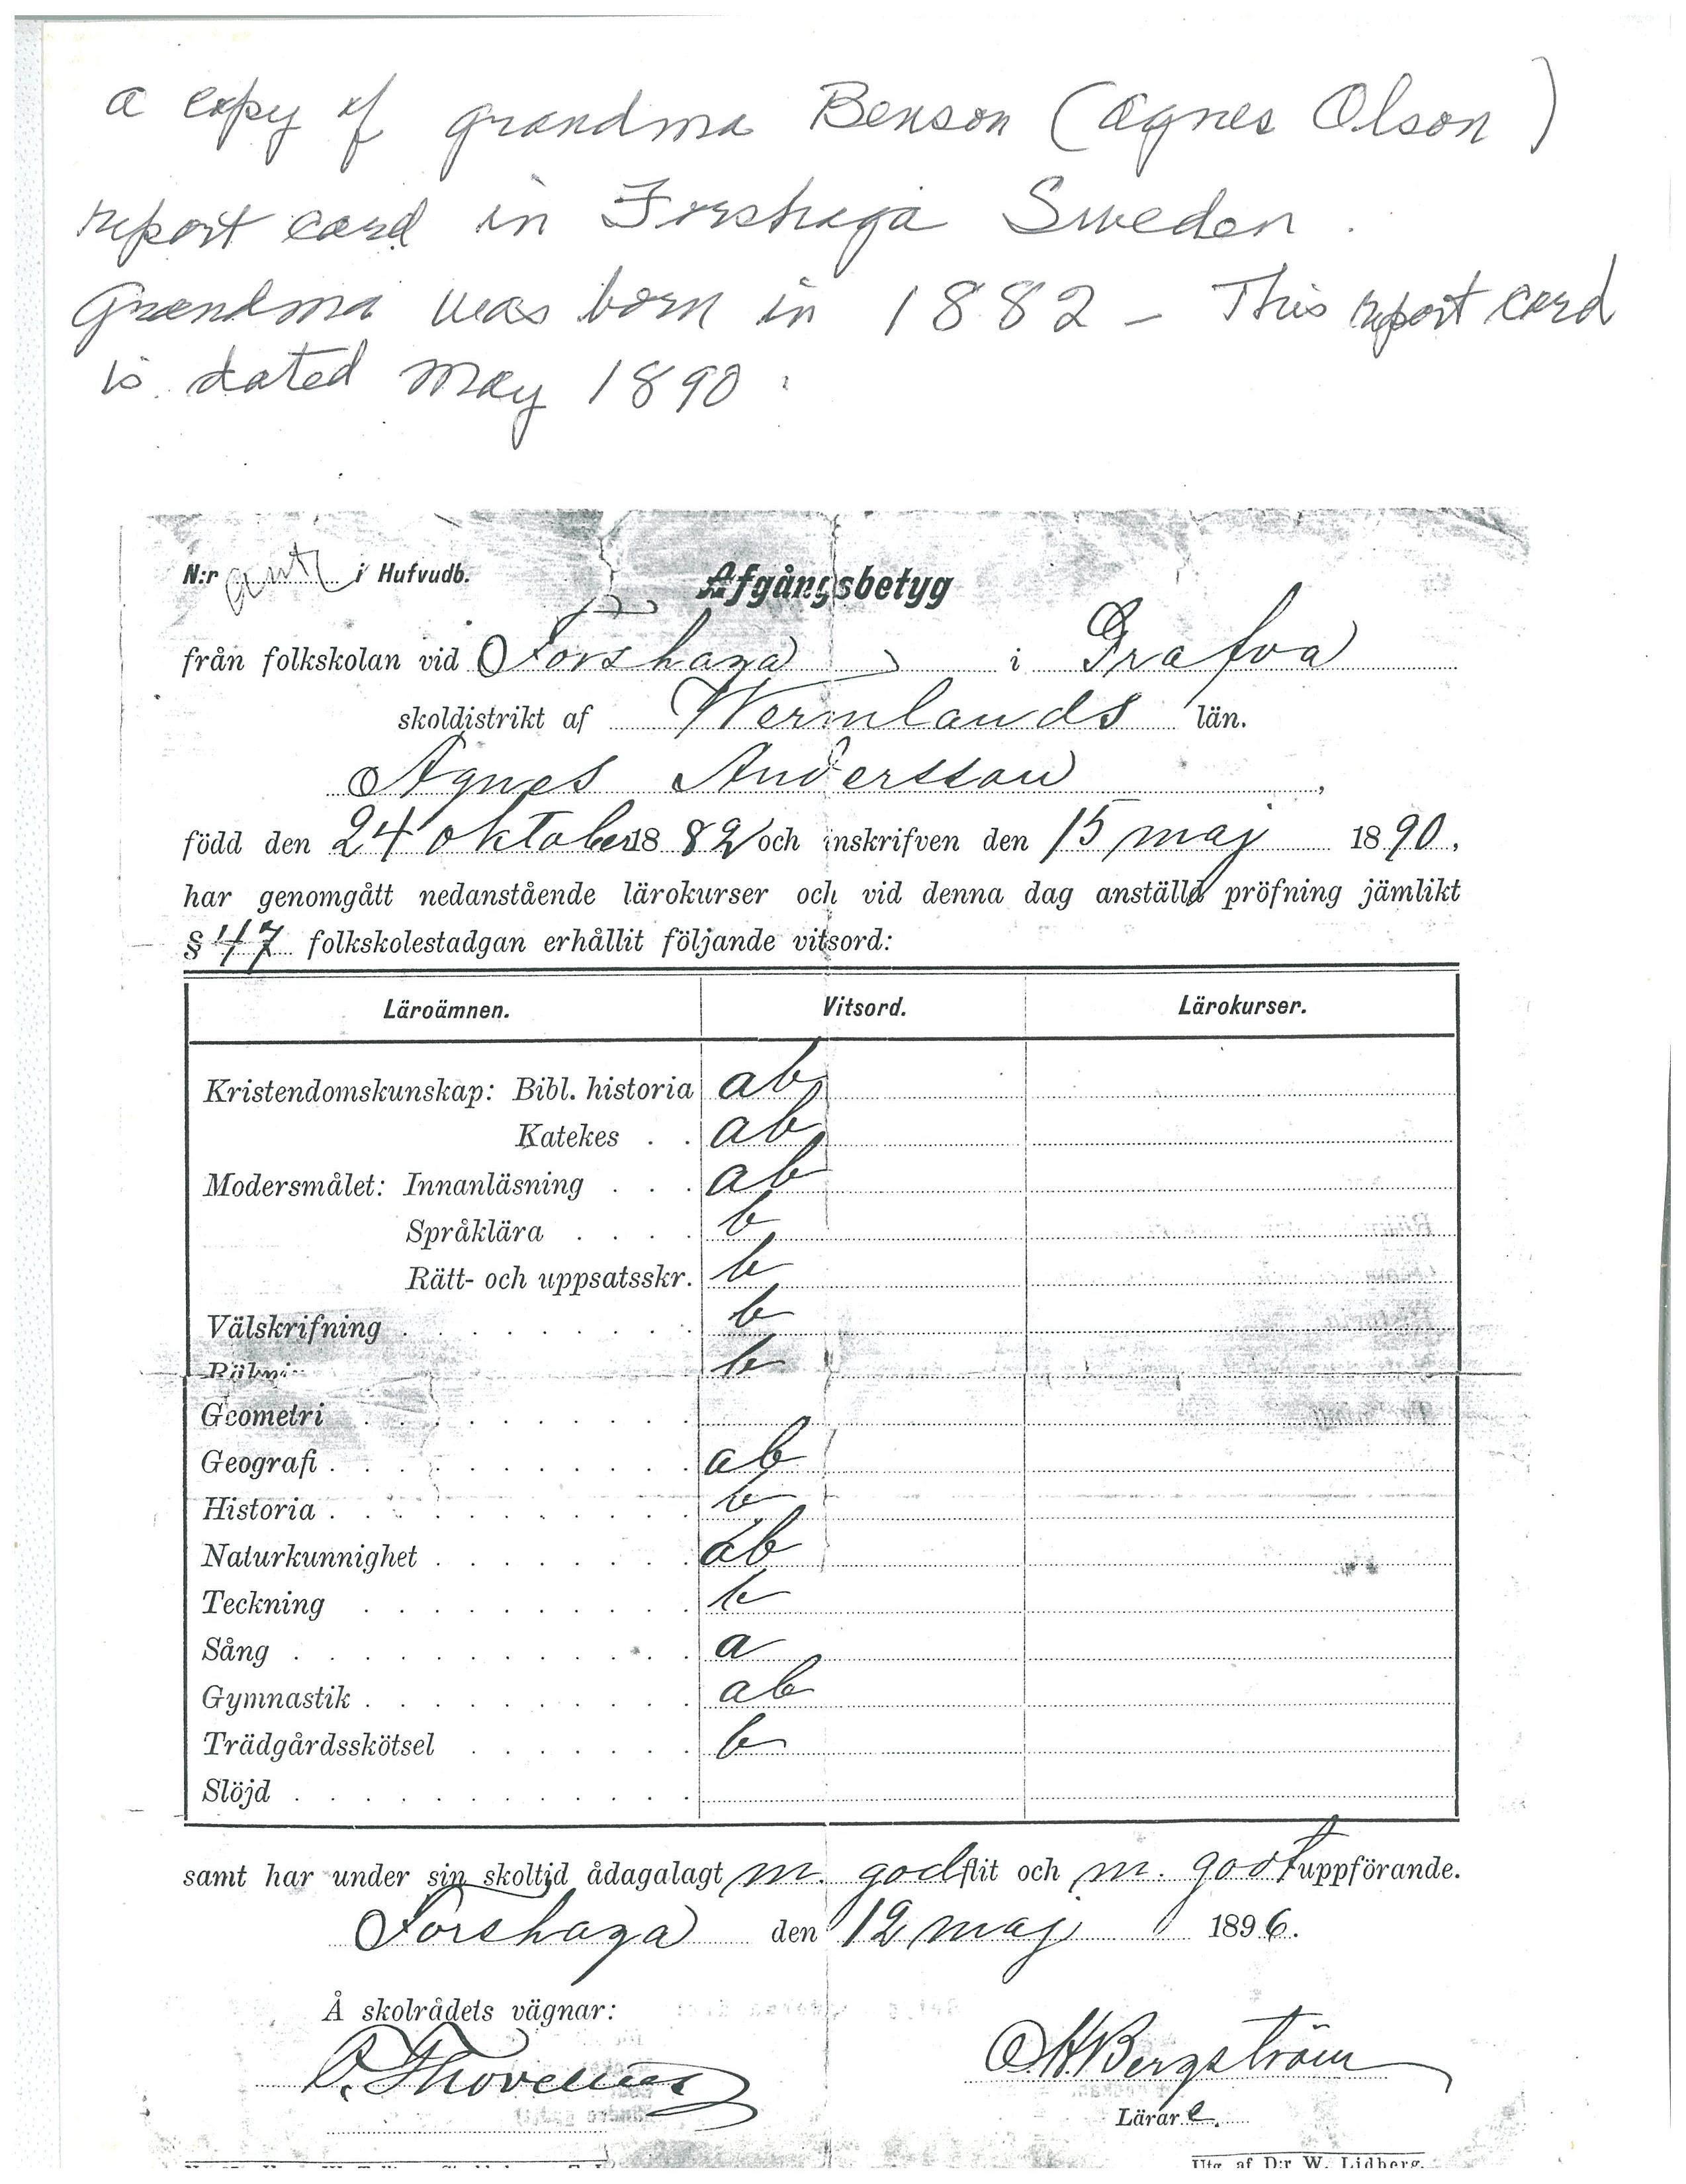 a copy of grandma Benson (Agnes Olson)
report card in Forshaga Sweden.
Grandma was born in 1882 – This report card
is dated May 1890.
N:r i Hufvudb.
Afgångsbetyg
från folkskolan vid Forshaga i Grafva
skoldistrikt af Wermlands län.
Agnes Andersson,
född den 24 oktober 1882 och inskrifven den 15 maj 1890,
har genomgått nedanstående lärokurser och vid denna dag anställd pröfning jämlikt
§ 47 folkskolestadgan erhållit följande vitsord:
Läroämnen. Vitsord. Lärokurser.
Kristendomskunskap: Bibl. historia ab
Katekes . . ab
Modersmålet: Innanläsning . . . ab
Språklära . . . . b
Rätt- och uppsatsskr. b
Välskrifning . . . . . . . . . b
b
Geometri . . . . . . . . . .
Geografi . . . . . . . . . . . ab
Historia . . . . . . . . . . . b
Naturkunnighet . . . . . . . . ab
Teckning . . . . . . . . . . b
Sång . . . . . . . . . . . . a
Gymnastik . . . . . . . . . . ab
Trädgårdsskötsel . . . . . . . b
Slöjd . . . . . . . . . . . .
samt har under sin skoltid ådagalagt m. god flit och m. godt uppförande.
Forshaga den 12 maj 1896.
Å skolrådets vägnar:
O. H. Bergström
Lärare.
Utg. af D:r W. Lidberg.